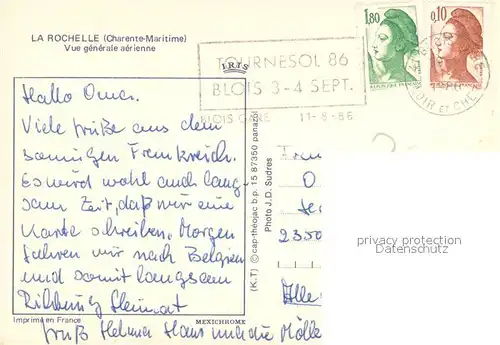 LA ROCHELLE (Charente-Maritime)
Vue générale aérienne
IRIS
TOURNESOL 86
BLOIS 3-4 SEPT.
BLOIS GARE 11-8-86
1,80
0,10
LOIR ET CHER
Hallo Oma.
Viele Grüße aus dem
sonnigen Frankreich.
Es wird wohl auch lang-
sam Zeit, daß wir eine
Karte schreiben. Morgen
fahren wir nach Belgien
und somit langsam
Richtung Heimat
Gruß Helma Hans und die Mölle
Imprimé en France
MEXICHROME
(K.T) © cap-théojac b.p. 15 87350 panazol
Photo J.D. Sudres
Frau
O
2350
privacy protection
Datenschutz
Alle